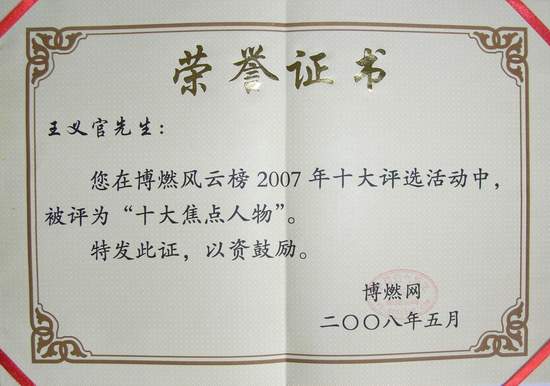 荣誉证书
王义官先生：
您在博燃风云榜2007年十大评选活动中，
被评为“十大焦点人物”。
特发此证，以资鼓励。
博燃网
二〇〇八年五月